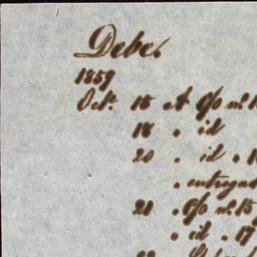 Debe.
1859
Oct. 15 A C/o nº 1
18 " id
20 " id "
" entregad
21 " C/o nº 15
" id " 17